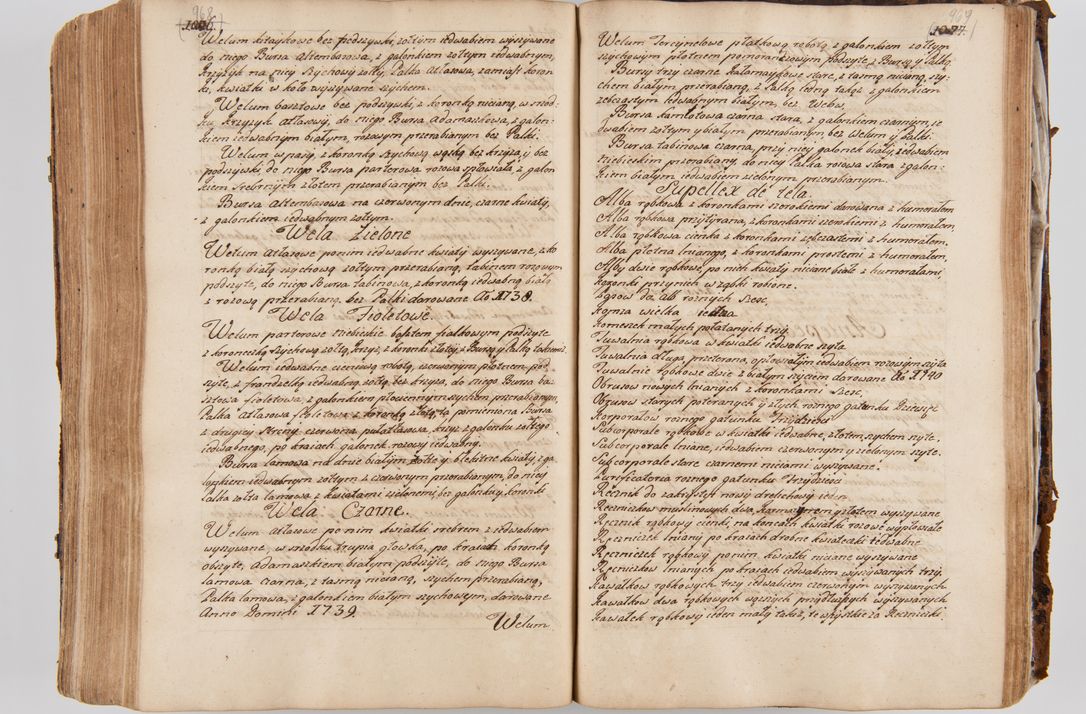 968
Welum kitaykowe bez podszywki, zołtym iedwabiem wyszywane
do niego Bursa Altembasowa, z galonkiem zołtym iedwabnym,
krzyżyk na niey szychowy zołty, Palka Atlasowa, zamiast koron-
ki, kwiatki w koło wyszywane szychem.
Welum basztowe bez podszywki, z koronką nicianą, w srod-
ku krzyzyk atlasowy, do niego Bursa Adamaszkowa, z galon-
kiem iedwabnym białym, rozowym przerabianym bez Palki.
Welum w pasy, z koronką szychową wąską bez krzyża, y bez
podszywki, do niego Bursa parterowa rozowa spłowiała, z galon
kiem srebrnym złotem przerabianym bez Palki.
Bursa Altembasowa na czerwonym dnie, czarne kwiaty,
z galonkiem iedwabnym zołtym.
Wela Zielone
Welum Atlasowe ponim iedwabne kwiaty wyszywane, z ko
ronką białą szychową zołtym przerabianą, tabinem rozowym
podszyte, do niego Bursa tabinowa, z koronką iedwabną białą
z rozową przerabianą, bez Palki darowane Ao 1738.
Wela Fioletowe.
Welum parterowe niebieskie basztem fiałkowym podszyte
z koroneczką szychową zołtą, krzyż, z koronki złotey, z Bursą y Palką takiemiż.
Welum iedwabne sieciową robotą, czerwonym płotnem pod-
szyte, z frandzelką iedwabną zołtą, bez krzyża, do niego Bursa ba-
sztowa fioletowa, z galonkiem płowiennym szychem przerabianym,
Palka Atlasowa fioletowa z koronką złotą, ta pomieniona Bursa
z drugiey strony czerwona pułatłasowa, krzyż z galonku zołtego
iedwabnego, po kraiach galonek rozowy iedwabny.
Bursa lamowa na dnie białym zołte y błękitne kwiaty, z ga
lonkiem iedwabnym zołtym z czerwonym przerabianym, do niey
Palka zołta lamowa, z kwiatami zielonemi, bez galonka y koronki
Wela Czarne.
Welum Atlasowe po nim kwiatki srebrem z iedwabiem
wyszywane, w srodku trupia głowka, po kraiach koronką
obszyte, Adamaszkiem białym podszyte, do niego Bursa
lamowa czarna, z tasmą nicianą, szychem przerabianą,
Palka lamowa, z galonkiem białym szychowym, darowane
Anno Domini 1739.
Welum
969
Welum Tercynelowe płatkową robotą, z galonkiem zołtym
szychowym płotnem pomoranczowym podszyte, z Bursą y Palką.
Bursy trzy czarne kałamaykowe stare, z tasmą nicianą, szy-
chem białym przerabianą, z Palką iedną takąż z galonkiem
zebczastym iedwabnym białym, bez Welow.
Bursa kamlotowa czarna stara, z galonkiem czarnym, ie
dwabiem zołtym y białym przerabianym, bez Welum y Palki.
Bursa tabinowa czarna, przy niey galonek biały, z iedwabiem
niebieskim przerabiany, do niey Palka rozowa stara z galon-
kiem białym iedwabiem zielonym przerabianym.
Supellex de tela.
Alba rąbkowa z koronkami szerokiemi darowana z humerałem
Alba rąbkowa przytyrana, z koronkami szerokiemi z humerałem,
Alba rąbkowa cienka z koronkami zębczastemi z humerałem,
Alba płotna lnianego, z koronkami prostemi z humerałem,
Alby dwie rąbkowe, po nich kwiaty niciane białe z humerałami,
koronki przynich w ząbki robione.
Pasow do alb roznych Szesc,
Komza wielka iedna
Komeszek małych połatanych trzy.
Tuwalnia rąbkowa w kwiatki iedwabne szyta
Tuwalnia długa przetarana, opłowiałym iedwabiem rozowym szyta
Tuwalnie rąbkowe dwie z białym szyciem darowane Ao 1740
Obrusow nowych lnianych z koronkami Szesc,
Obrusow starych poteranych y złych roznego gatunku Dziewięc
Korporałow roznego gatunku Trzydziesci
Subcorporale rąbkowe w kwiatki iedwabne, złotem, szychem szyte.
Subcorporale lniane, iedwabiem czerwonym y zielonym szyte.
Subcorporale stare czarnemi niciami wyszywane.
Purificatoria roznego gatunku Trzydziesci
Ręcznik do zakrystyi nowy drelichowy ieden
Ręczniczkow muslinowych dwa, karmazynem y złotem wyszywane
Ręcznik rąbkowy cienki, na koncach kwiatki rozowe wypłowiałe
Ręczniczek lniany po kraiach drobne kwiateczki iedwabne
Ręczniczek rąbkowy ponim kwiatki niciane wyszywane
Ręczniczkow lnianych po kraiach iedwabiem wyszywanych trzy.
Kawałkow rąbkowych trzy iedwabiem czerwonym wyszywanych
Kawałkow dwa rąbkowych węższych przydłuższych wyszywanych
Kawałek rąbkowy ieden mały także, te wszystkie za Ręczniczki.